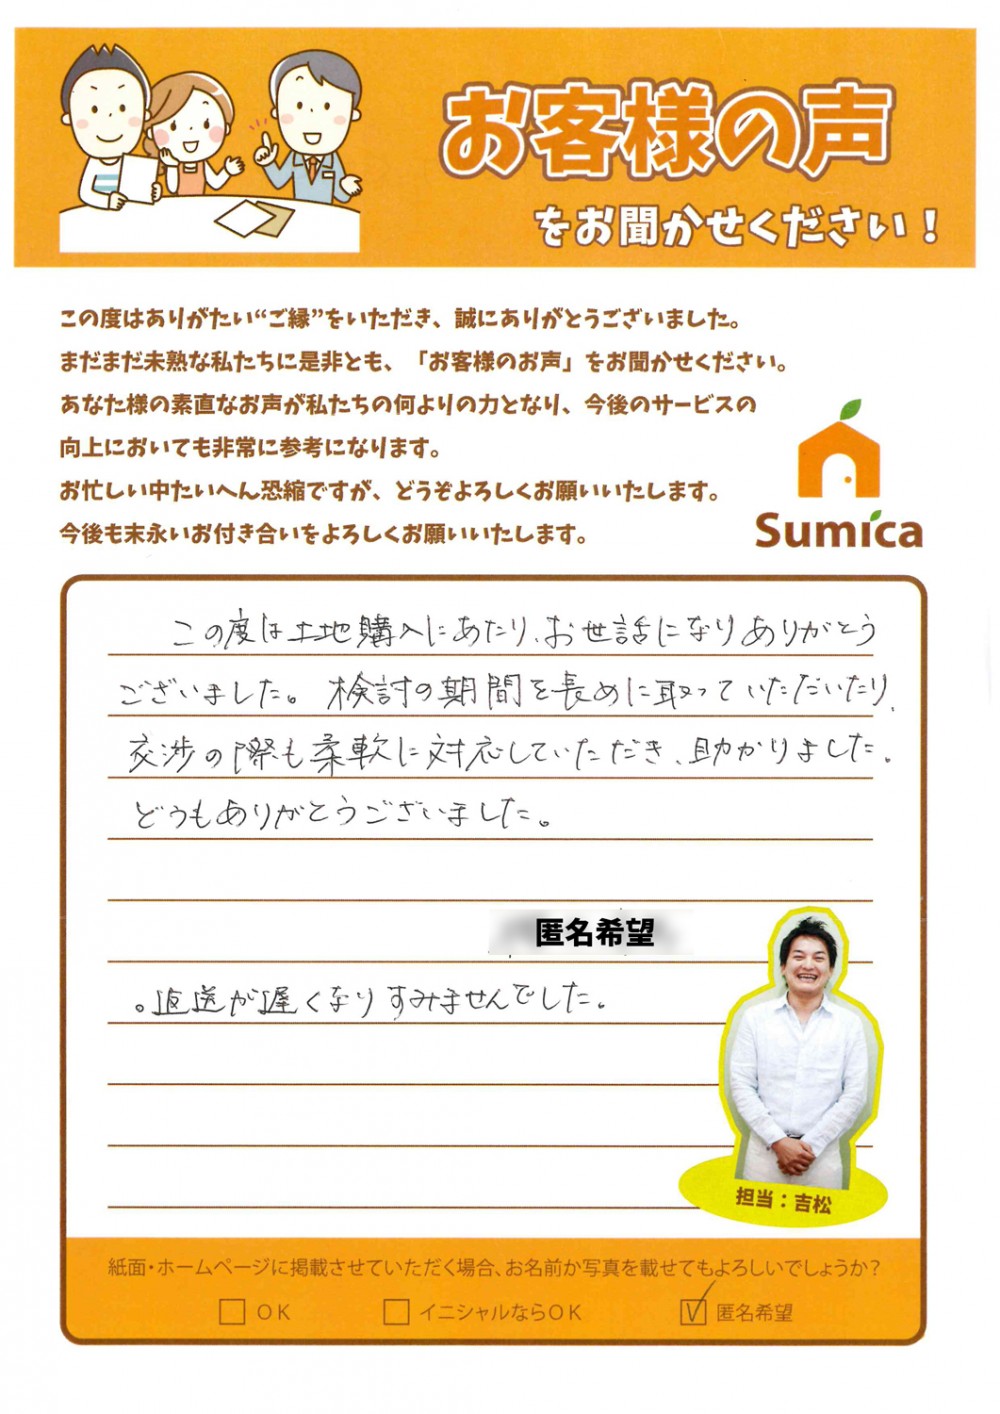 お客様の声
をお聞かせください！
この度はありがたい“ご縁”をいただき、誠にありがとうございました。
まだまだ未熟な私たちに是非とも、「お客様のお声」をお聞かせください。
あなた様の素直なお声が私たちの何よりの力となり、今後のサービスの
向上においても非常に参考になります。
お忙しい中たいへん恐縮ですが、どうぞよろしくお願いいたします。
今後も末永いお付き合いをよろしくお願いいたします。
Sumica
この度は土地購入にあたり、お世話になりありがとう
ございました。検討の期間を長めに取っていただいたり、
交渉の際も柔軟に対応していただき、助かりました。
どうもありがとうございました。
匿名希望
。返送が遅くなりすみませんでした。
担当：吉松
紙面・ホームページに掲載させていただく場合、お名前か写真を載せてもよろしいでしょうか？
OK イニシャルならOK 匿名希望